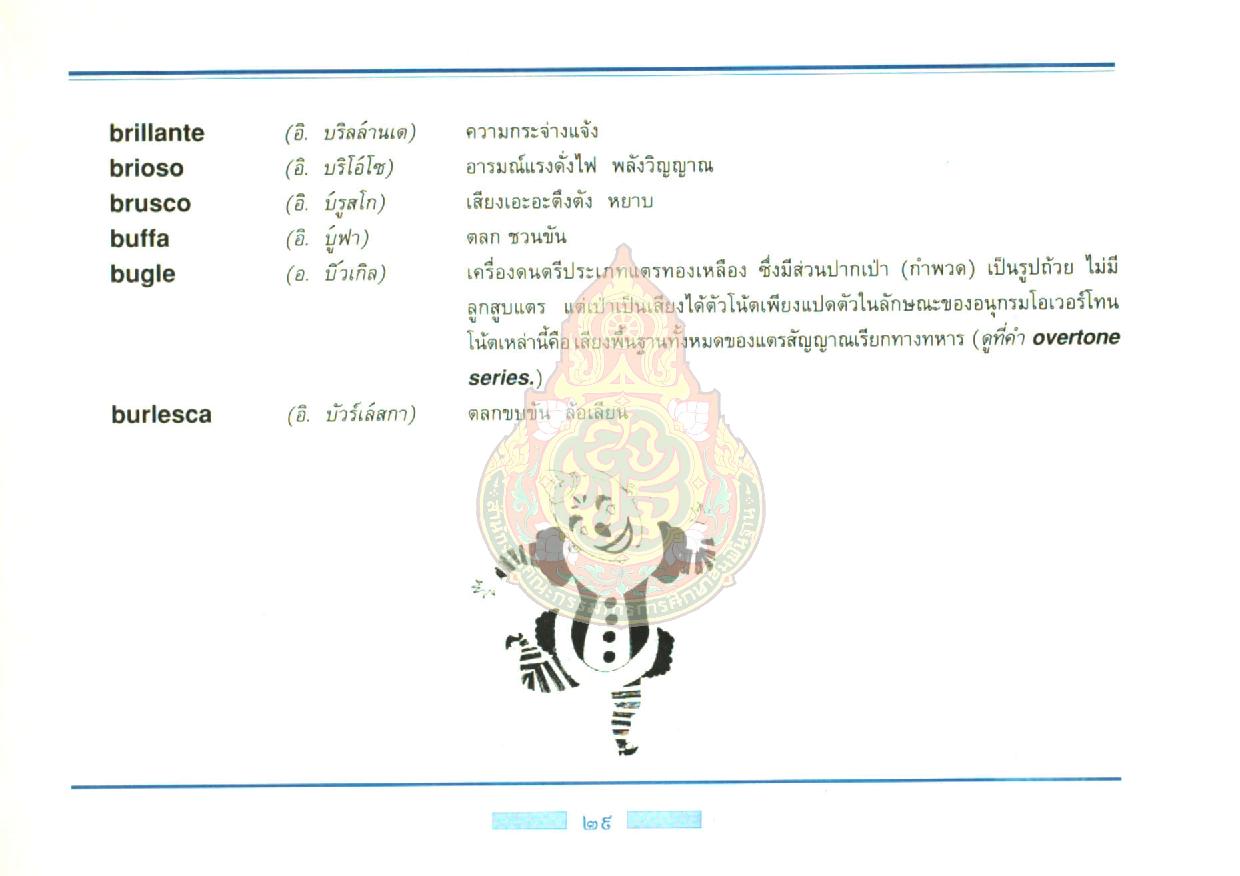 brillante (อิ. บริลล์านเต) ความกระจ่างแจ้ง
brioso (อิ. บริโอ์โซ) อารมณ์แรงดั่งไฟ พลังวิญญาณ
brusco (อิ. บ์รูสโก) เสียงเอะอะตึงตัง หยาบ
buffa (อิ. บู์ฟา) ตลก ชวนขัน
bugle (อ. บิ์วเกิล) เครื่องดนตรีประเภทแตรทองเหลือง ซึ่งมีส่วนปากเป่า (กำพวด) เป็นรูปถ้วย ไม่มี
ลูกสูบแตร แต่เป่าเป็นเสียงได้ตัวโน้ตเพียงแปดตัวในลักษณะของอนุกรมโอเวอร์โทน
โน้ตเหล่านี้คือเสียงพื้นฐานทั้งหมดของแตรสัญญาณเรียกทางทหาร (ดูที่คำ overtone
series.)
burlesca (อิ. บัวร์เล์สกา) ตลกขบขัน ล้อเลียน
สำนักงานคณะกรรมการการศึกษาขั้นพื้นฐาน
๒๙